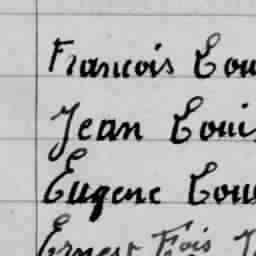 Francois Cou
Jean Coui
Eugene Cou
Ernest Fois